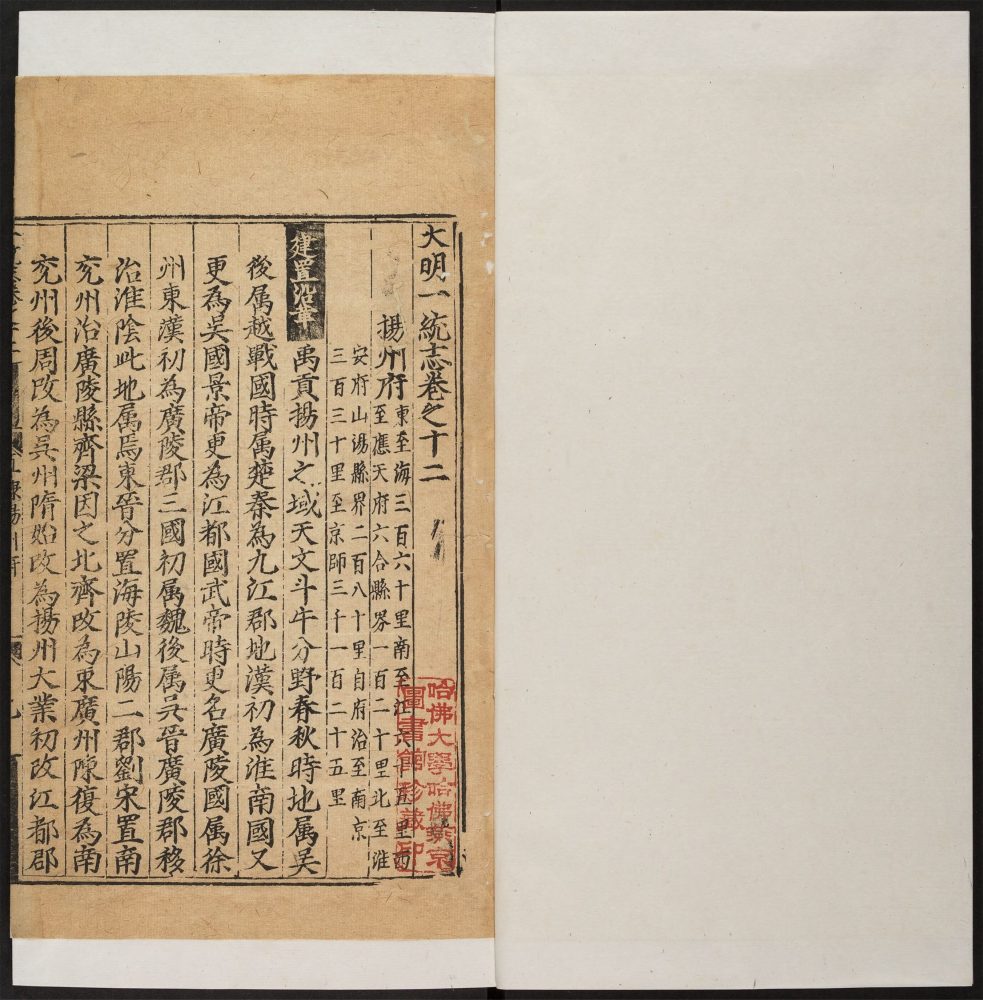 大明一統志卷之十二
揚州府
東至海三百六十里南至江六十五里西
至應天府六合縣界一百二十里北至淮
安府山陽縣界二百八十里自府治至南京
三百三十里至京師三千一百二十五里
建置沿革
禹貢揚州之域天文斗牛分野春秋時地属吳
後属越戰國時属楚秦為九江郡地漢初為淮南國又
更為吳國景帝更為江都國武帝時更名廣陵國属徐
州東漢初為廣陵郡三國初属魏後属吳晉廣陵郡移
治淮陰此地属焉東晉分置海陵山陽二郡劉宋置南
兖州治廣陵縣齊梁因之北齊改為東廣州陳復為南
兖州後周改為吳州隋始改為揚州大業初改江都郡
哈佛大學哈佛燕京
圖書館珍藏印